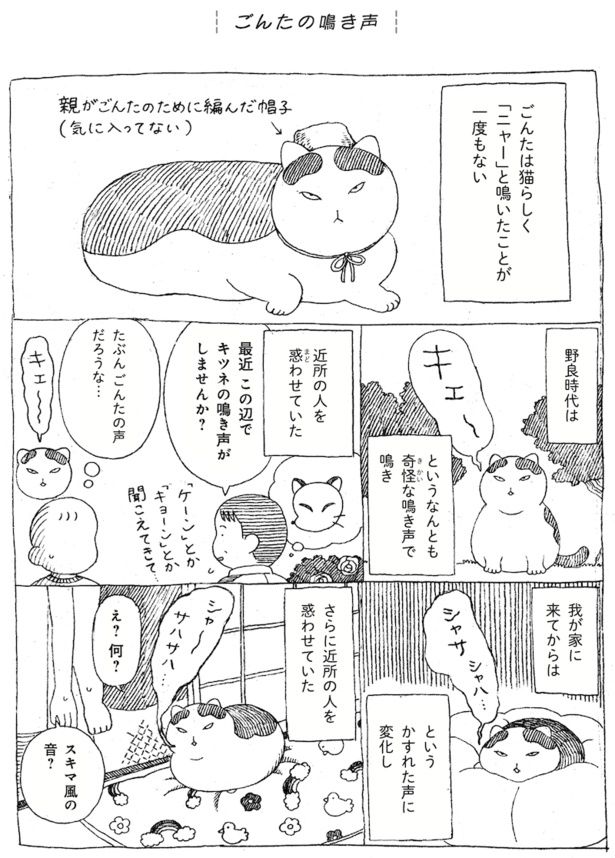 ごんたの鳴き声
ごんたは猫らしく
「ニャー」と鳴いたことが
一度もない
親がごんたのために編んだ帽子
(気に入ってない)
野良時代は
キェ〜〜
というなんとも
奇怪な鳴き声で
鳴き
近所の人を
惑わせていた
最近 この辺で
キツネの鳴き声が
しませんか?
「ケーン」とか
「ギョーン」とか
聞こえてきて…
たぶん ごんたの声
だろうな…
キェ〜〜
我が家に
来てからは
シャサ
シャハ…
という
かすれた声に
変化し
さらに近所の人を
惑わせていた
シャ〜
サハサハ…
え?何?
スキマ風の
音?